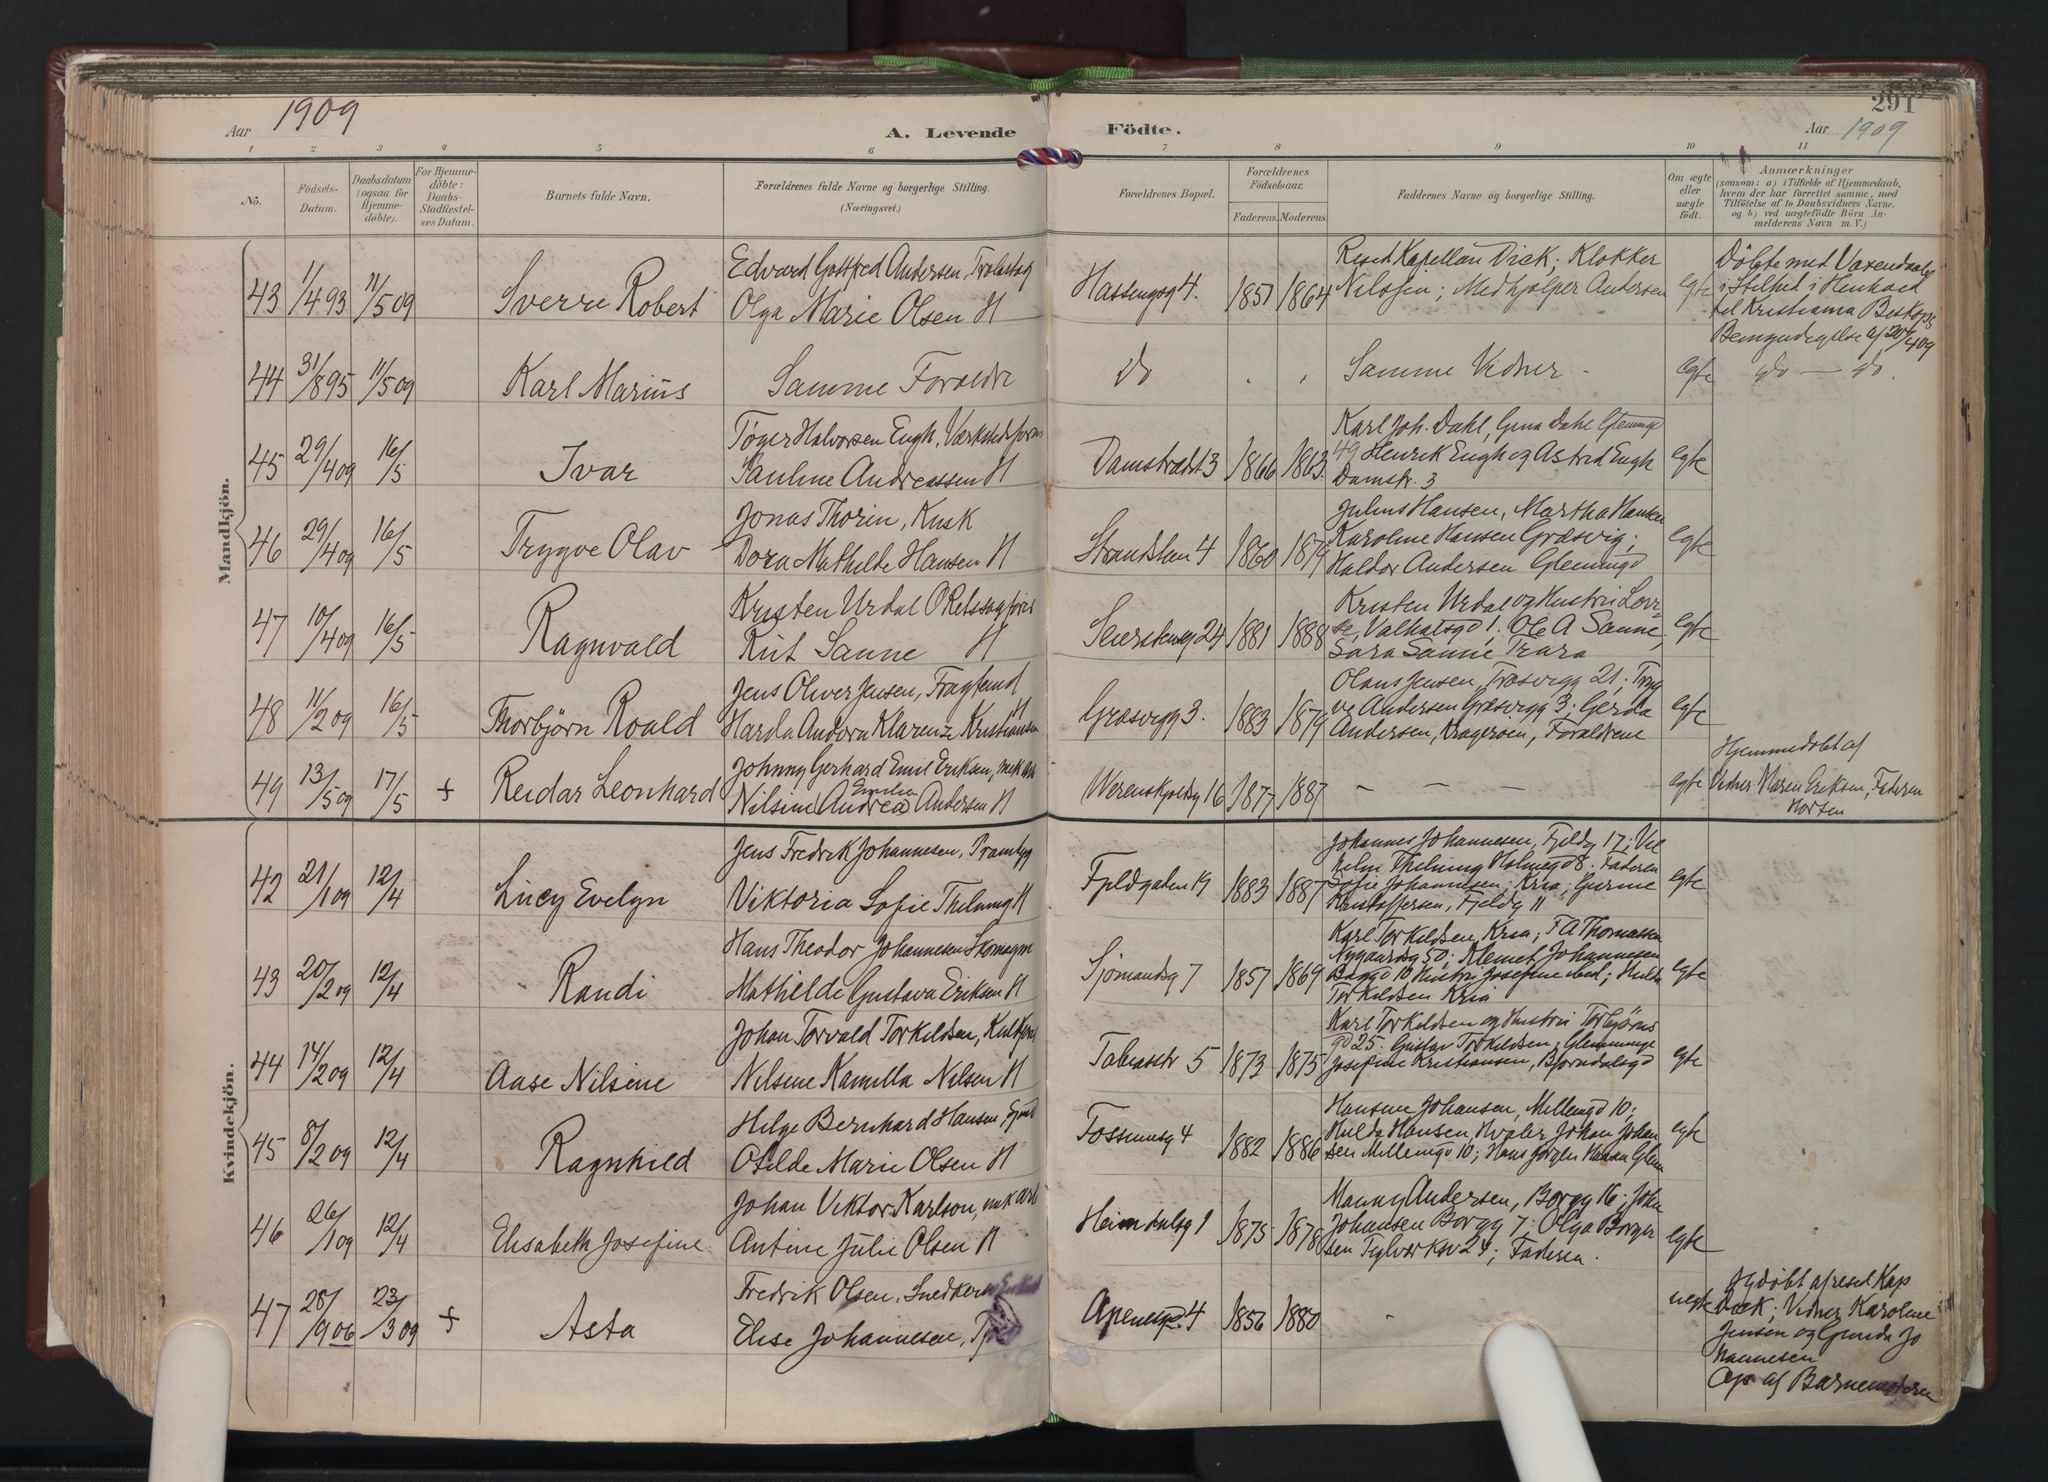 291
Aar 1909
A. Levende Födte.
Aar 1909
1 2 3 4 5 6 7 8 9 10 11
No.
Födsels-Datum.
Daabsdatum (ogsaa for Hjemmedöbte).
For Hjemmedöbte: Daabs-Stadfæstelses Datum.
Barnets fulde Navn.
Forældrenes fulde Navne og borgerlige Stilling. (Næringsvei.)
Forældrenes Bopæl.
Forældrenes Födselsaar.
Faderens. Moderens.
Faddernes Navne og borgerlige Stilling.
Om ægte eller uægte födt.
Anmærkninger
(saasom: a) i Tilfælde af Hjemmedaab, hvem der har forrettet samme, med Tilföielse af to Daabsvidners Navne, og b) ved uægtefödte Börn Anmelderens Navn m. V.)
Mandkjön.
43 1/4 93 11/5 09 Sverre Robert
Edvard Gottfred Andersen,
Olga Marie Olsen H
Hassengog 4. 1851 1864
Resd Kapellan Dick; Klokker
Nilssen; Medhjælper Andersen
egte
Döbte med Voxendaab
i Stilhed i Henhold
til Kristiania Biskops
Bemyndigelse af 20/4 09
44 31/8 95 11/5 09 Karl Marius
Samme Forældre
Do
Samme Vidner -
egte do — do.
45 29/4 09 16/5 Ivar
Töger Halvorsen Engh,
Pauline Andreassen H
Damstrædet 3 1866 1863
Karl Joh. Dahl, Gina Dahl Glemminge
49 Henrik Engh og Astrid Engh
Damstr. 3
egte
46 29/4 09 16/5 Trygve Olav
Jonas Thorin, Kusk
Dora Mathilde Hansen H
4 1860 1879
Julius Hansen, Martha Hansen
Karoline Hansen Græsvig;
Haldor Andersen
egte
47 10/4 09 16/5 Ragnvald
Kristen Urdal
Rut Sanne H
24 1881 1888
Kristen Urdal og Hustru
1. Ole A Sanne,
Sara Sanne
egte
48 11/2 09 16/5 Thorbjörn Roald
Jens Oliver Jensen,
Harda Andora Klarenze Kristiansen
Græsvigg 3. 1883 1879
Olaus Jensen, Træsvigg 21. Tryg
ve Andersen Græsvigg 3; Gerda
Andersen, Krageröen, Forældrene
egte
49 13/5 09 17/5 + Reidar Leonhard
Johnny Gerhard Emil Eriksen,
Nilsine Andrea Emilie Andersen H
16 1877 1887
- - -
egte
Hjemmedöbt af
Vidner Maren Eriksen, Faderen
Horten
Kvindekjön.
42 21/1 09 12/4 Lucy Evelyn
Jens Fredrik Johannesen,
Viktoria Sofie Thelning H
Fjeldgaten 19 1883 1887
Johannes Johannesen, Fjeldg 17; Vil
helm Thelning Holmegd 8. Faderen
Sofie Johannesen; Kria;
Kristoffersen, Fjeldg 11
egte
43 20/2 09 12/4 Randi
Hans Theodor Johannesen Skomagm
Mathilde Gustava Eriksen H
Sjömandsg 7 1857 1869
Karl Torkildsen, Kria; F A Thomassen
Nygaardsg 50; Klemet Johannesen
10 Hustru Josefine ibid; Hulda
Torkildsen Kria
egte
44 14/2 09 12/4 Aase Nilsine
Johan Torvald Torkildsen,
Nilsine Kamilla Nilsen H
Tobiasstr 5 1873 1875
Karl Torkildsen og Hustru Torbjörns
gd 25. Gustav Torkildsen, Glemminge
Josefine Kristiansen, Bjorndalsgd
egte
45 8/2 09 12/4 Ragnhild
Helge Bernhard Hansen,
Otilde Marie Olsen H
Fossumsg 4 1882 1886
Hansine Johansen, Millemgd 10;
Hulda Hansen, Hvaler Johan Johan
sen Millemgd 10; Hans Jörgen Hansen
egte
46 26/1 09 12/4 Elisabeth Josefine
Johan Viktor Karlson,
Antine Julie Olsen H
Heimdalsg 1 1875 1878
Manny Andersen, Borgg 16; John
Johansen Borgg 7; Olga Borger
sen Teglverksv 24; Faderen.
egte
47 28/9 06 23/3 09 + Asta
Fredrik Olsen, Snedker
Elise Johannesen,
Apenesgd. 4 1856 1880
-
uegte
Hjdöbt af resd Kap
Dick; Vidner Karoline
Jensen og Gunda Jo
hannesen
Op. af Barnemoderen